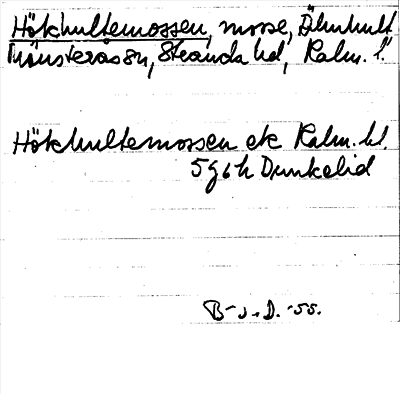 Hökhultemossen, mosse, Älmhult
Mönsterås sn, Stranda hd, Kalm. l.
Hökhultemossen ek Kalm. bl.
5g6h Dunkelid
B-s.D. -55.